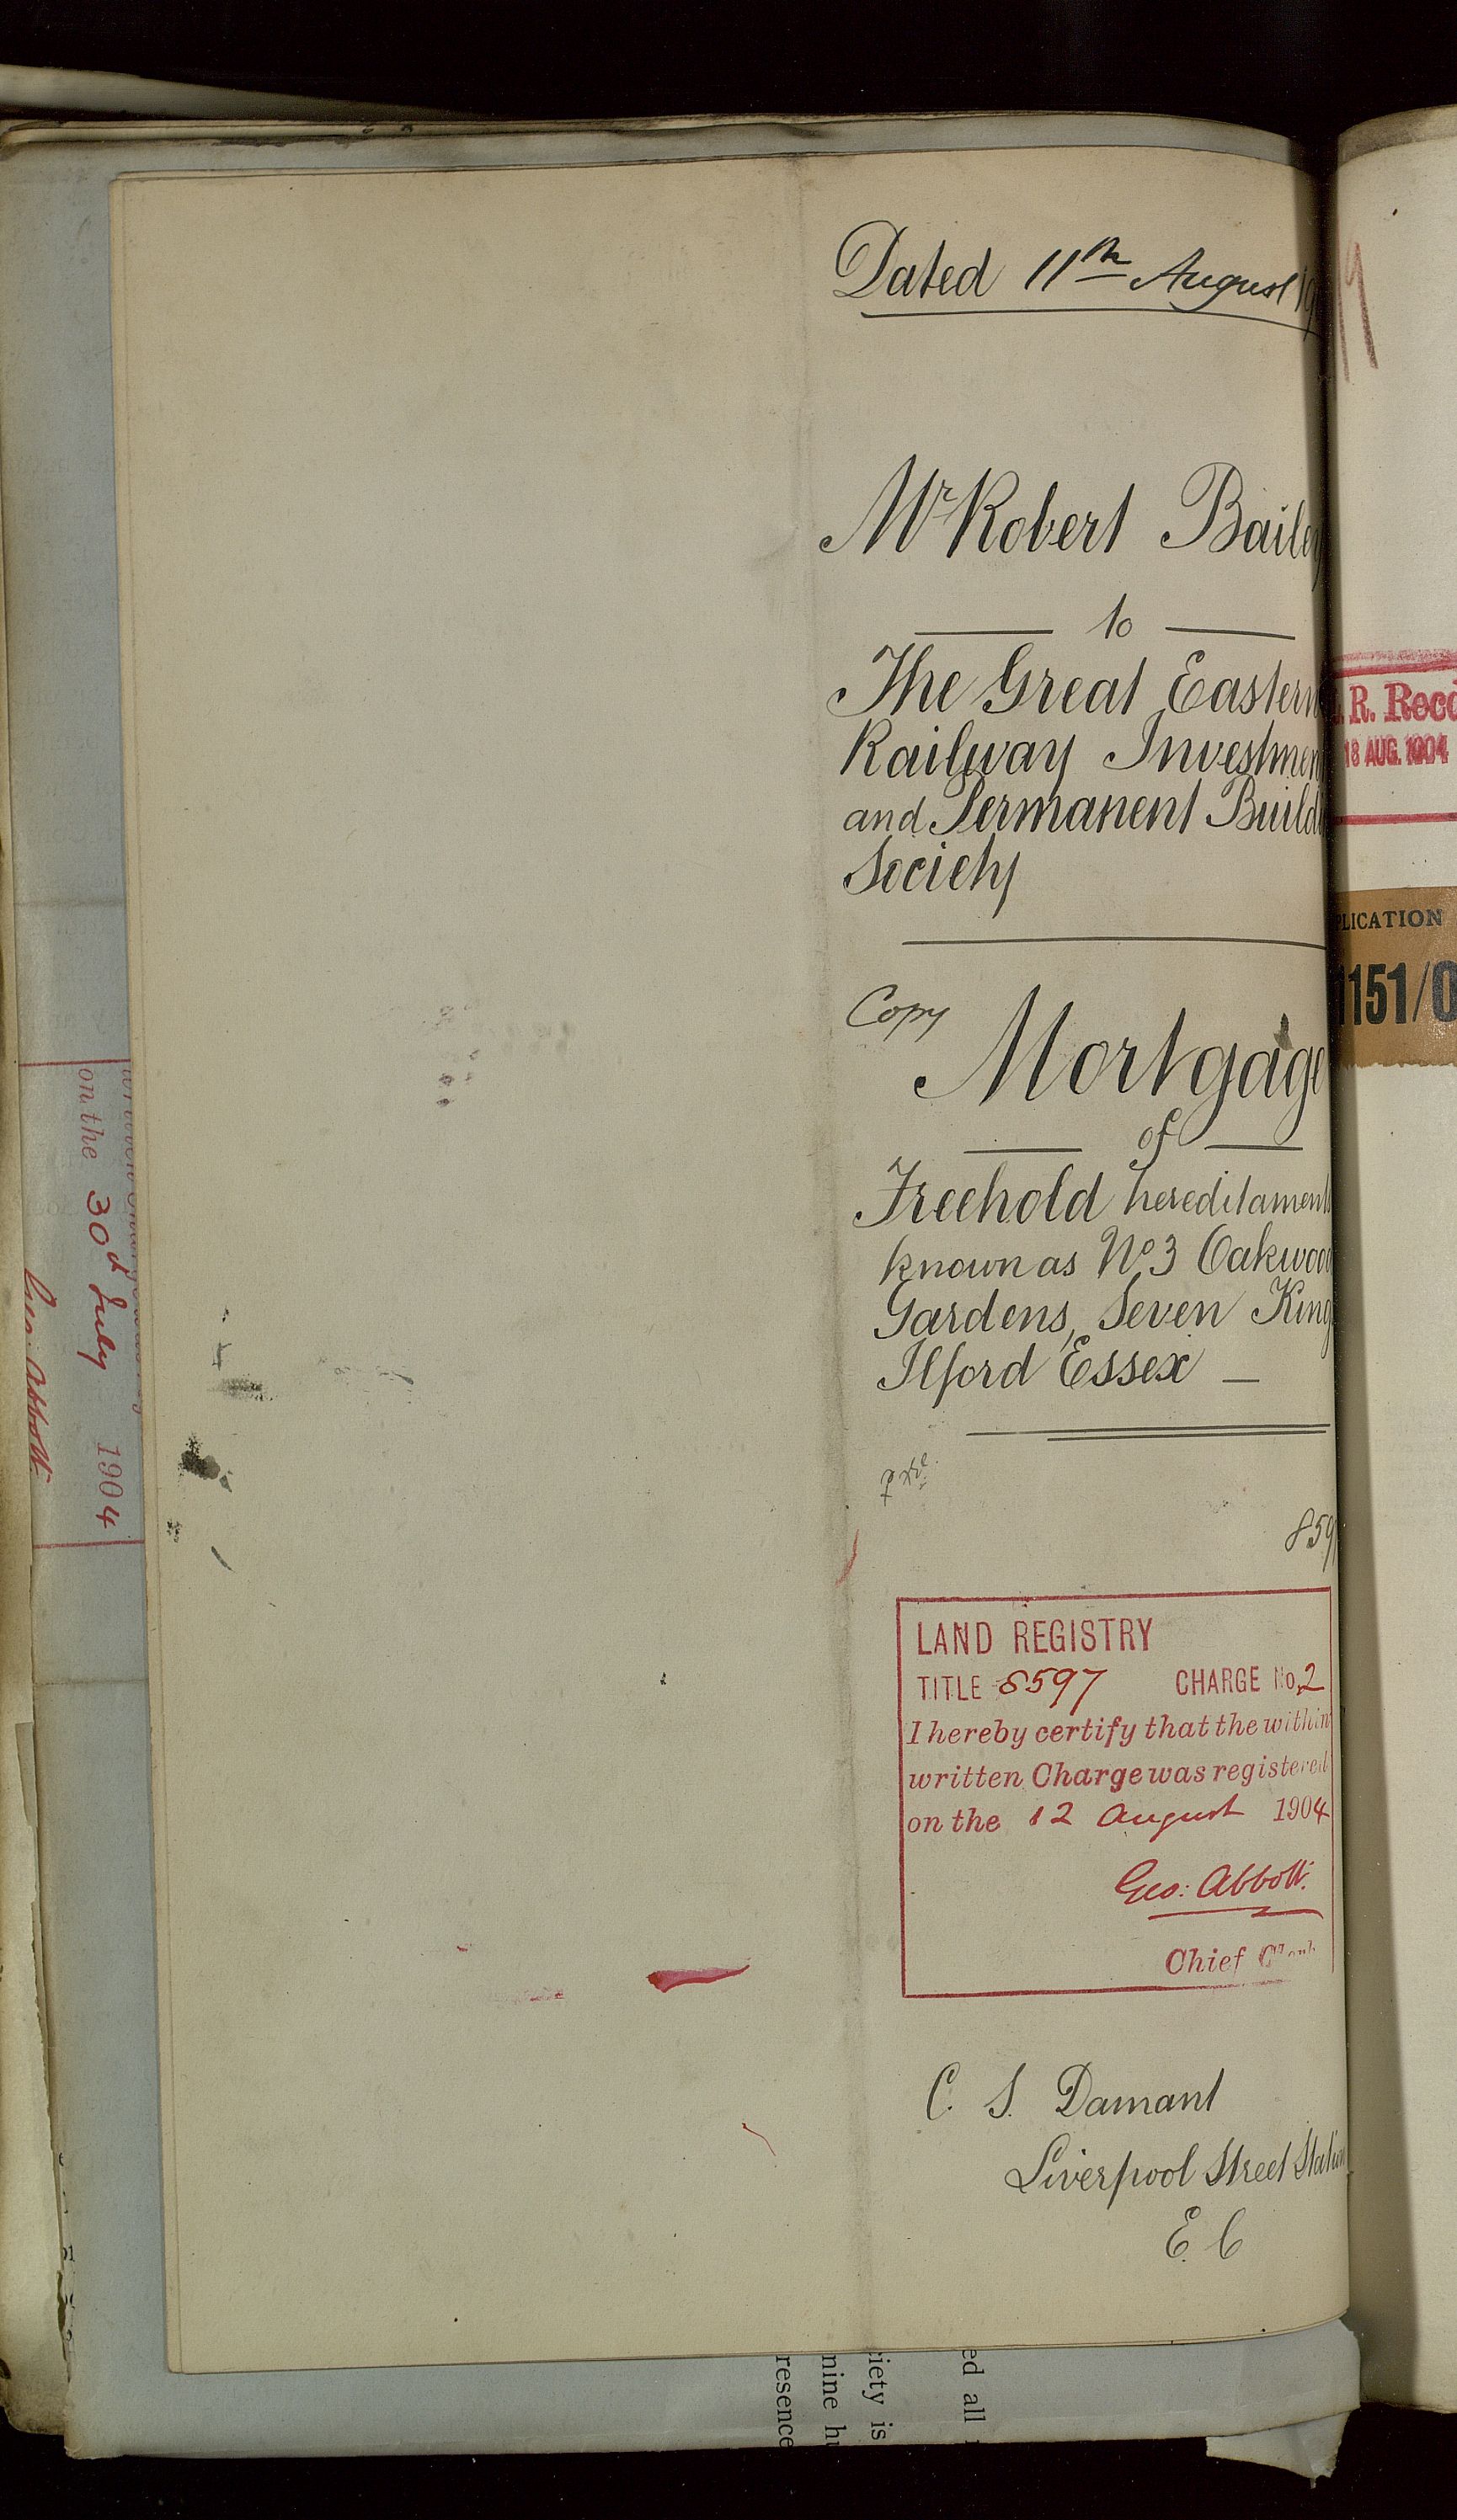 Dated 11th August 19
Mr Robert Bailey
to
The Great Eastern
Railway Investmen
and Permanent Build
Society
Copy
Mortgage
of
Freehold hereditaments
known as No 3 Oakwood
Gardens, Seven King
Ilford Essex
859
LAND REGISTRY
TITLE 8597 CHARGE No. 2
I hereby certify that the within
written Charge was registered
on the 12 August 1904
Geo: Abbott.
Chief Clerk
C. S. Damant
Liverpool Street Station
E. C
on the 30th July 1904
Geo: Abbott
R. Rec
18 AUG. 1904
PLICATION
1151/0
ed all
iety is
mine hu
resence